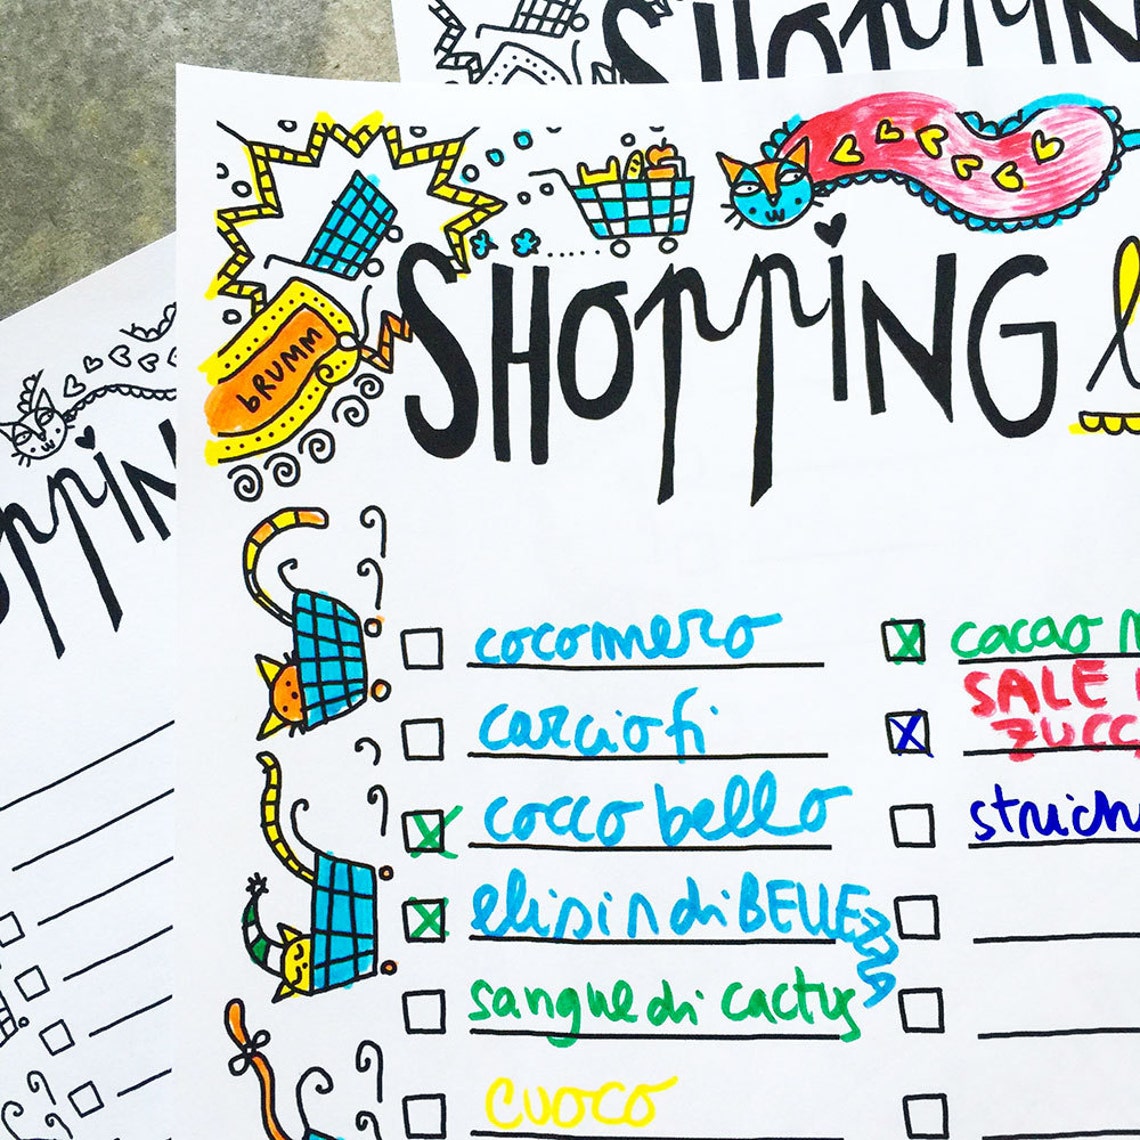 SHOPPIN
SHOPPING
bRUMM
OPPIN
cocomero
carciofi
cocco bello
elisir di BELLEZZA
sangue di cactus
cuoco
cacao
SALE
ZUCC
strich